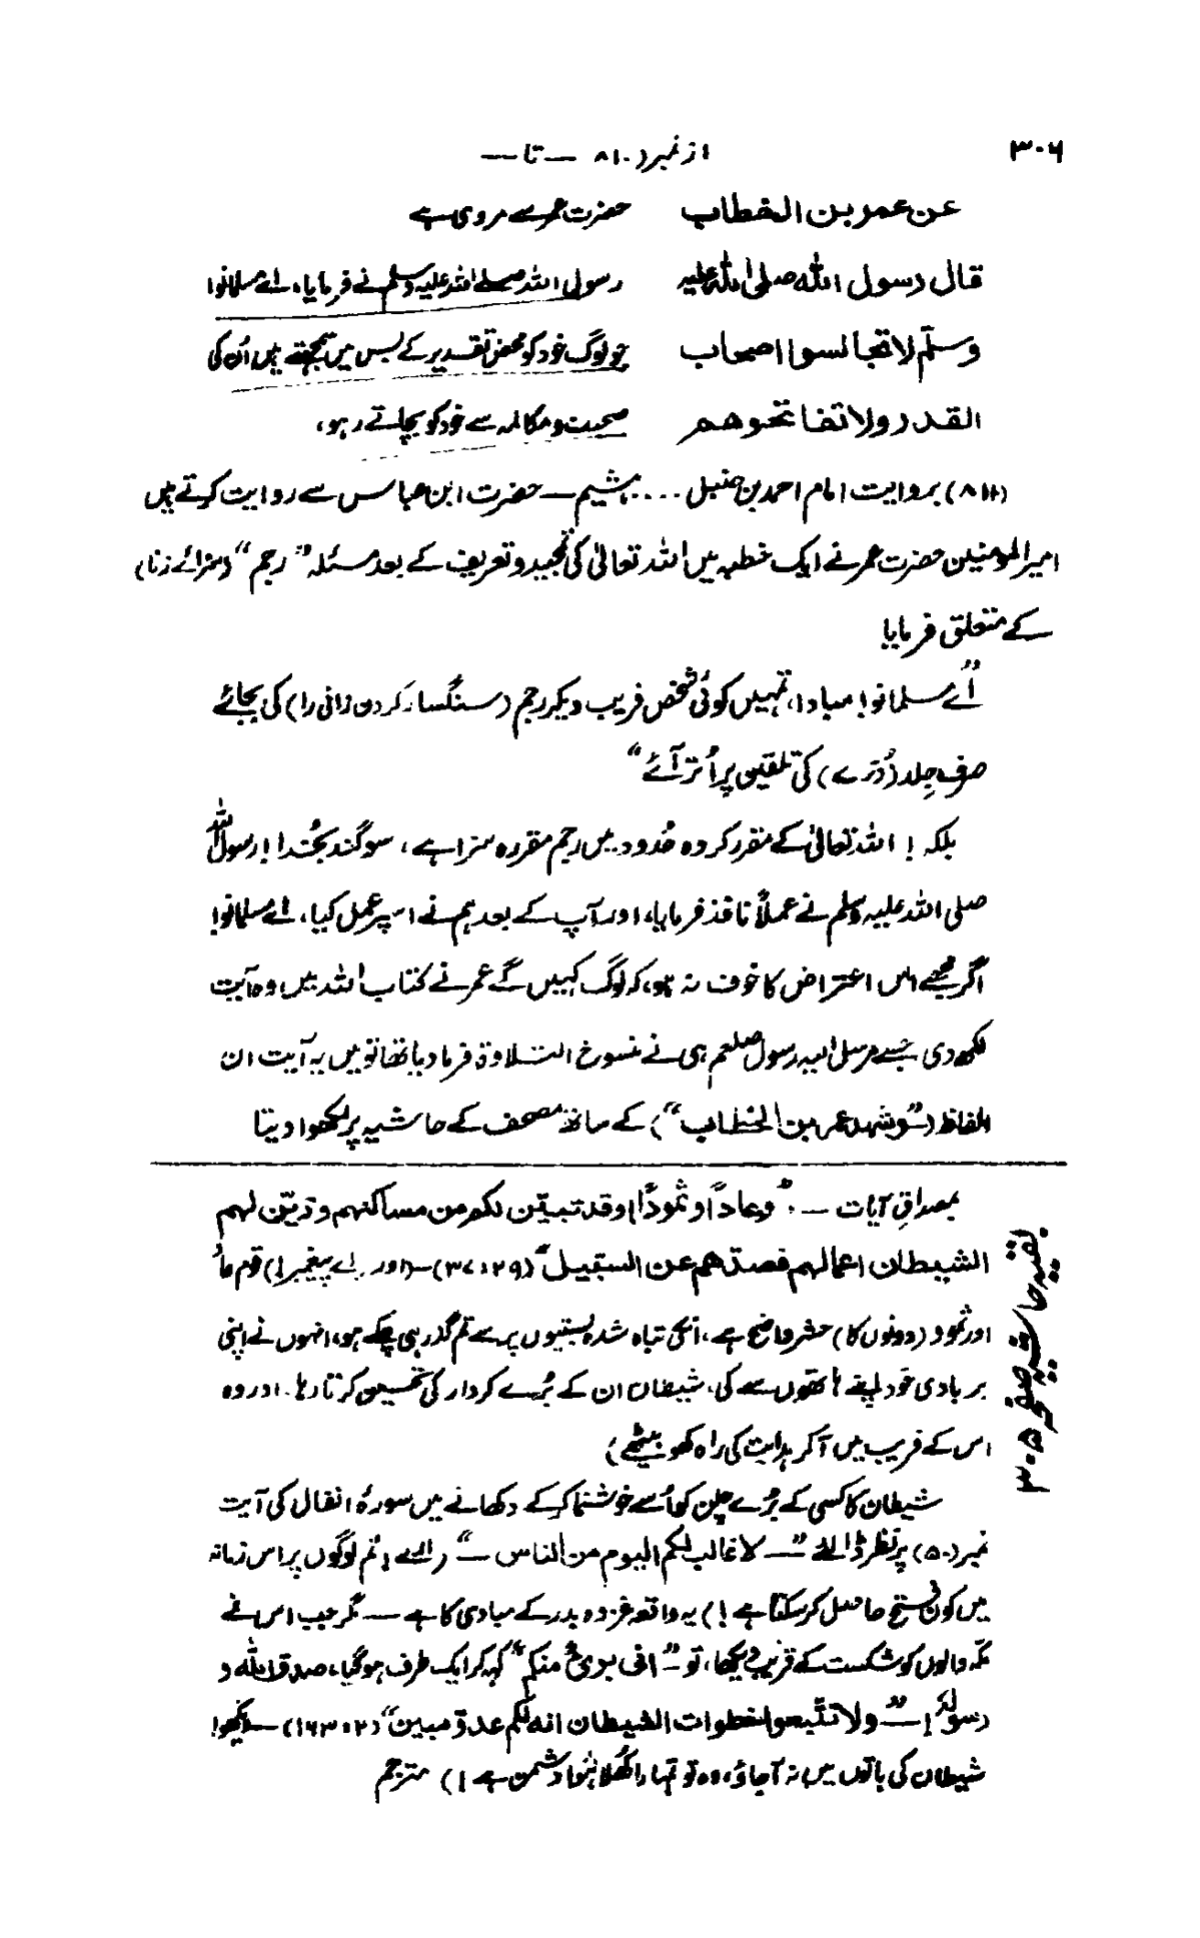 ۳۰۶
از نمبر (۸۱۰ — تا —
عن عمر بن الخطاب حضرت عمر سے مروی ہے
قال رسول الله صلی الله علیه رسول اللہ صلے اللہ علیہ وسلم نے فرمایا، اے مسلمانو!
وسلم لا تجالسوا اصحاب جو لوگ خود کو محض تقدیر کے بس میں سمجھتے ہیں اُن کی
القدر ولا تفاتحوهم صحبت و مکالمہ سے خود کو بچاتے رہو،
(۸۱۱) بروایت امام احمد بن حنبل .... ہشیم — حضرت ابن عباس سے روایت کرتے ہیں
امیر المومنین حضرت عمر نے ایک خطبہ میں اللہ تعالیٰ کی تمجید و تعریف کے بعد مسئلہ ”رجم“ (سزائے زنا)
کے متعلق فرمایا
”اے مسلمانو! مبادا، تمہیں کوئی شخص فریب دیکر رجم (سنگسار کردن زانی را) کی بجائے
صرف جِلد (دُرّے) کی تلقین پر اُتر آئے“
بلکہ! اللہ تعالیٰ کے مقرر کردہ حُدود میں رجم مقررہ سزا ہے، سوگند بخُدا! رسول اللہ
صلی اللہ علیہ وسلم نے عملاً نافذ فرمایا، اور آپ کے بعد ہم نے اس پر عمل کیا، اے مسلمانو!
اگر مجھے اس اعتراض کا خوف نہ ہو، کہ لوگ کہیں گے عمر نے کتاب اللہ میں وہ آیت
لکھ دی جسے مرسل الیہ رسول صلعم ہی نے منسوخ التلاوۃ فرما دیا تھا تو میں یہ آیت ان
الفاظ (”وشهد عمر بن الخطاب“) کے ساتھ مصحف کے حاشیہ پر لکھوا دیتا
بقیہ حاشیہ صفحہ ۳۰۵
بمصداقِ آیات — ”وعاداً وثموداً وقد تبیّن لکم من مساکنهم وزیّن لهم
الشیطان اعمالهم فصدّهم عن السبیل“ (۳۷:۲۹) — (اور اے پیغمبر!) قوم عاد
اور ثمود (دونوں کا) حشر واضح ہے، انکی تباہ شدہ بستیوں پر سے تم گذر ہی چکے ہو، انہوں نے اپنی
بربادی خود اپنے ہاتھوں سے کی، شیطان ان کے بُرے کردار کی تحسین کرتا رہا۔ اور وہ
اس کے فریب میں آکر ہدایت کی راہ کھو بیٹھے)
شیطان کا کسی کے بُرے چلن کو اُسے خوشنما کرکے دکھانے میں سورۂ انفال کی آیت
نمبر (۵۰) پر نظر ڈالئے ”— لا غالب لکم الیوم من الناس —“ (اے! تم لوگوں پر اس زمانہ
میں کون فتح حاصل کرسکتا ہے!) یہ واقعہ غزوہ بدر کے مبادی کا ہے — مگر جب اس نے
مکہ والوں کو شکست کے قریب دیکھا، تو — ”انی بریٔ منکم“ کہہ کر ایک طرف ہوگیا، صدق الله و
رسولہ! — ”ولا تتّبعوا خطوات الشیطان انه لکم عدوّ مبین“ (۱۶۳:۲) — دیکھو!
شیطان کی باتوں میں نہ آجاؤ، وہ تو تمہارا کُھلا ہُوا دشمن ہے!) مترجم